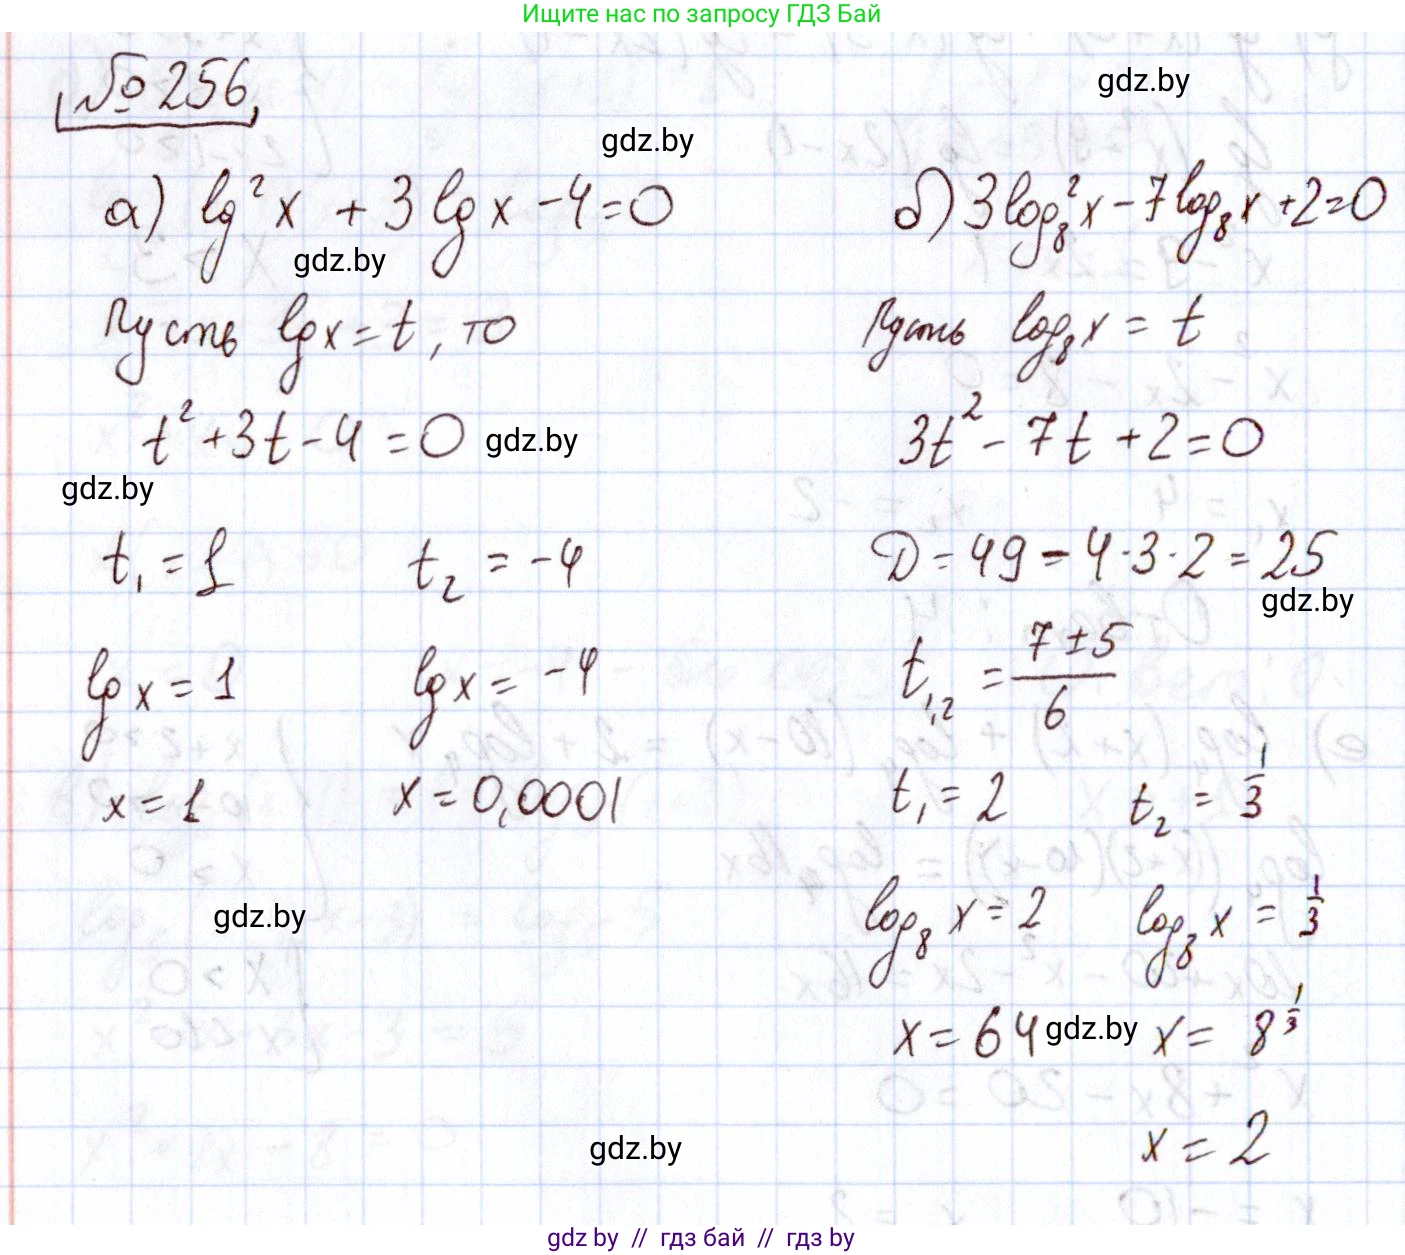 Ищите нас по запросу ГДЗ Бай
№ 256
gdz.by
gdz.by
а) lg²x + 3 lg x - 4 = 0
gdz.by
Пусть lg x = t, то
t² + 3t - 4 = 0
gdz.by
gdz.by
t₁ = 1 t₂ = -4
lg x = 1 lg x = -4
x = 1 x = 0,0001
gdz.by
б) 3log₈²x - 7log₈x + 2 = 0
Пусть log₈x = t
3t² - 7t + 2 = 0
D = 49 - 4·3·2 = 25
gdz.by
t₁,₂ = (7 ± 5)/6
t₁ = 2 t₂ = 1/3
log₈ x = 2 log₈ x = 1/3
x = 64 gdz.by x = 8^(1/3)
x = 2
gdz.by
gdz by // гдз бай // гдз by